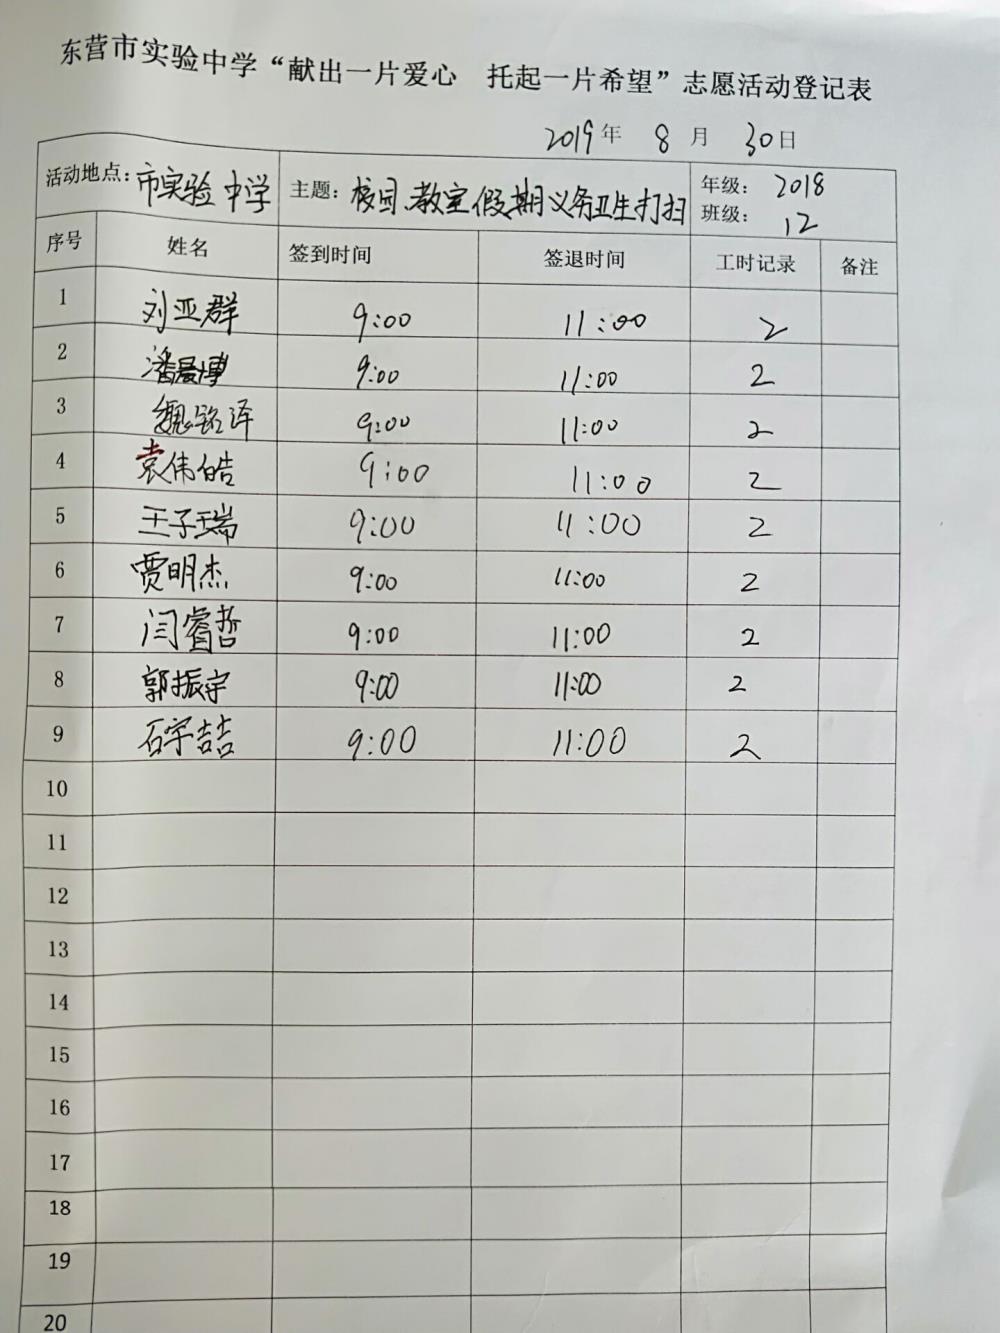 东营市实验中学“献出一片爱心 托起一片希望”志愿活动登记表
2019年 8 月 30日
活动地点：市实验中学 主题：校园、教室假期义务卫生打扫 年级：2018
班级：12
序号 姓名 签到时间 签退时间 工时记录 备注
1 刘亚群 9:00 11:00 2
2 潘晨博 9:00 11:00 2
3 魏铭泽 9:00 11:00 2
4 袁伟皓 9:00 11:00 2
5 王子瑞 9:00 11:00 2
6 贾明杰 9:00 11:00 2
7 闫睿哲 9:00 11:00 2
8 郭振宇 9:00 11:00 2
9 石宇喆 9:00 11:00 2
10
11
12
13
14
15
16
17
18
19
20